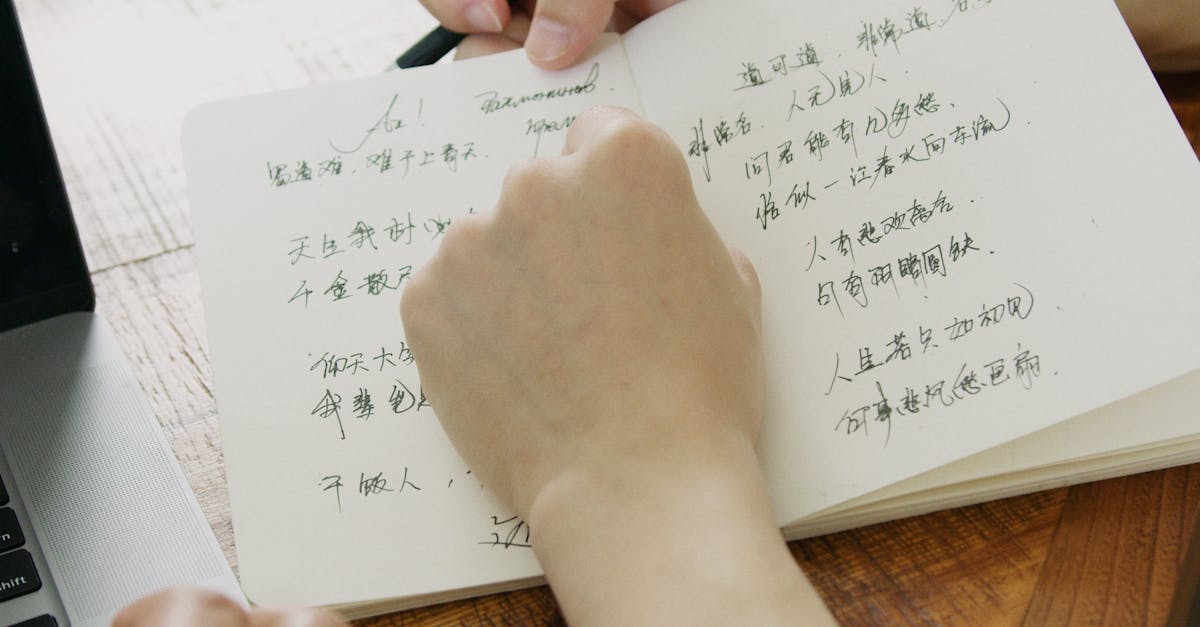 Ах!
蜀道难，难于上青天.
天生我材
千金散
仰天大
我辈
干饭人，
道可道，非常道，名
非常名，人无完人.
问君能有几多愁，
恰似一江春水向东流).
人有悲欢离合.
月有阴晴圆缺.
人生若只如初见，
何事悲风愁画扇.
shift